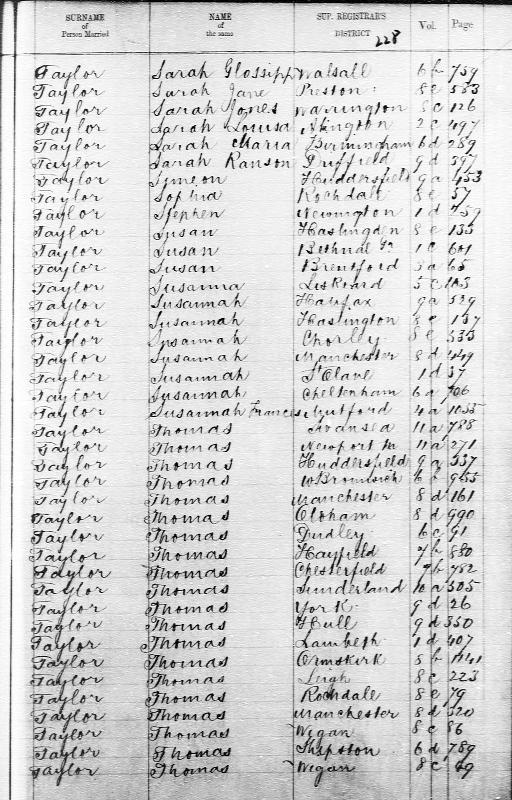 SURNAME of Person Married NAME of the same SUP. REGISTRAR'S DISTRICT Vol. Page
228
Taylor Sarah Glossipp Walsall 6b 759
Taylor Sarah Jane Preston 8e 533
Taylor Sarah Jones Warrington 8c 126
Taylor Sarah Louisa Abingdon 2c 497
Taylor Sarah Maria Birmingham 6d 289
Taylor Sarah Ranson Driffield 9d 397
Taylor Simeon Huddersfield 9a 453
Taylor Sophia Rochdale 8e 57
Taylor Stephen Newington 1d 259
Taylor Susan Haslingden 8e 135
Taylor Susan Bethnal Gn 1c 601
Taylor Susan Brentford 3a 65
Taylor Susanna Liskeard 5c 103
Taylor Susannah Halifax 9a 529
Taylor Susannah Haslington 8e 137
Taylor Susannah Chorley 8e 535
Taylor Susannah Manchester 8d 449
Taylor Susannah St Olave 1d 37
Taylor Susannah Cheltenham 6a 706
Taylor Susannah Frances Mutford 4a 1055
Taylor Thomas Swansea 11a 788
Taylor Thomas Newport M 11a 271
Taylor Thomas Huddersfield 9a 337
Taylor Thomas W Bromwich 6b 955
Taylor Thomas Manchester 8d 161
Taylor Thomas Oldham 8d 990
Taylor Thomas Dudley 6c 91
Taylor Thomas Hayfield 7b 880
Taylor Thomas Chesterfield 7b 782
Taylor Thomas Sunderland 10a 505
Taylor Thomas York 9d 26
Taylor Thomas Hull 9d 350
Taylor Thomas Lambeth 1d 407
Taylor Thomas Ormskirk 8b
Taylor Thomas Leigh 8c 223
Taylor Thomas Rochdale 8e 79
Taylor Thomas Manchester 8d 320
Taylor Thomas Wigan 8c 86
Taylor Thomas Shipston 6d 789
Taylor Thomas Wigan 8c